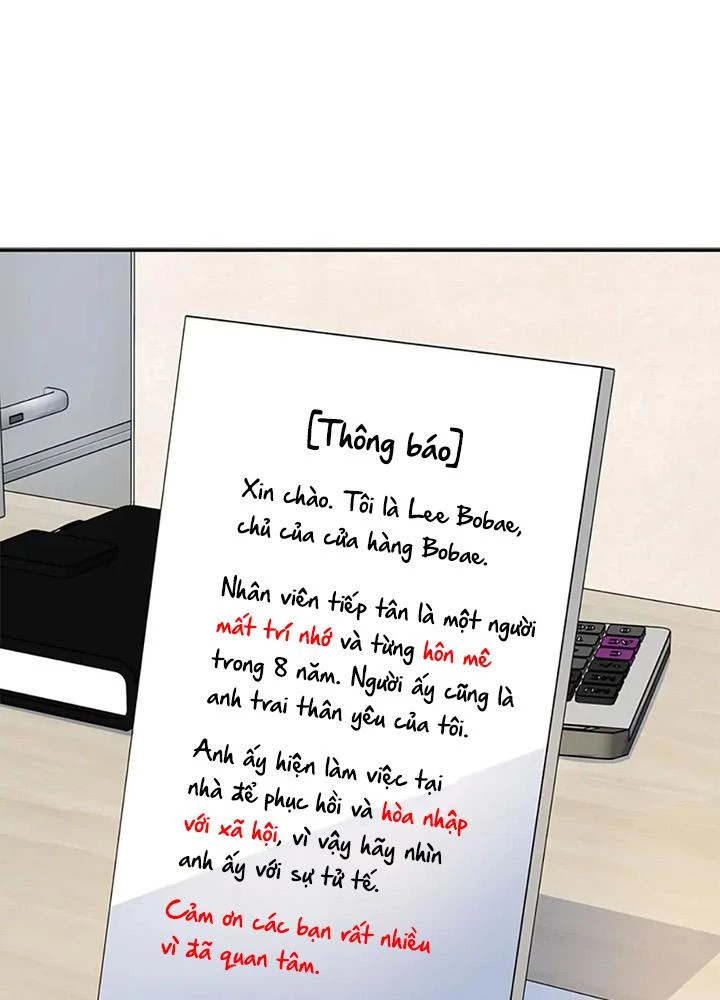 [Thông báo]
Xin chào. Tôi là Lee Bobae,
chủ của cửa hàng Bobae.
Nhân viên tiếp tân là một người
mất trí nhớ và từng hôn mê
trong 8 năm. Người ấy cũng là
anh trai thân yêu của tôi.
Anh ấy hiện làm việc tại
nhà để phục hồi và hòa nhập
với xã hội, vì vậy hãy nhìn
anh ấy với sự tử tế.
Cảm ơn các bạn rất nhiều
vì đã quan tâm.